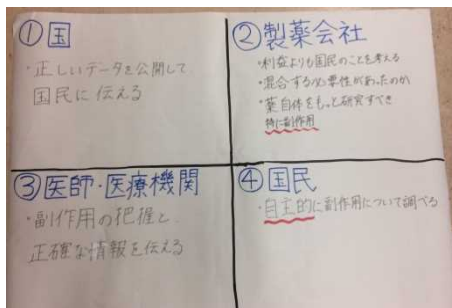 ①国
・正しいデータを公開して
国民に伝える
②製薬会社
・利益よりも国民のことを考える
・混合する必要性があったのか
・薬自体をもっと研究すべき
特に副作用
③医師・医療機関
・副作用の把握と
正確な情報を伝える
④国民
・自主的に副作用について調べる